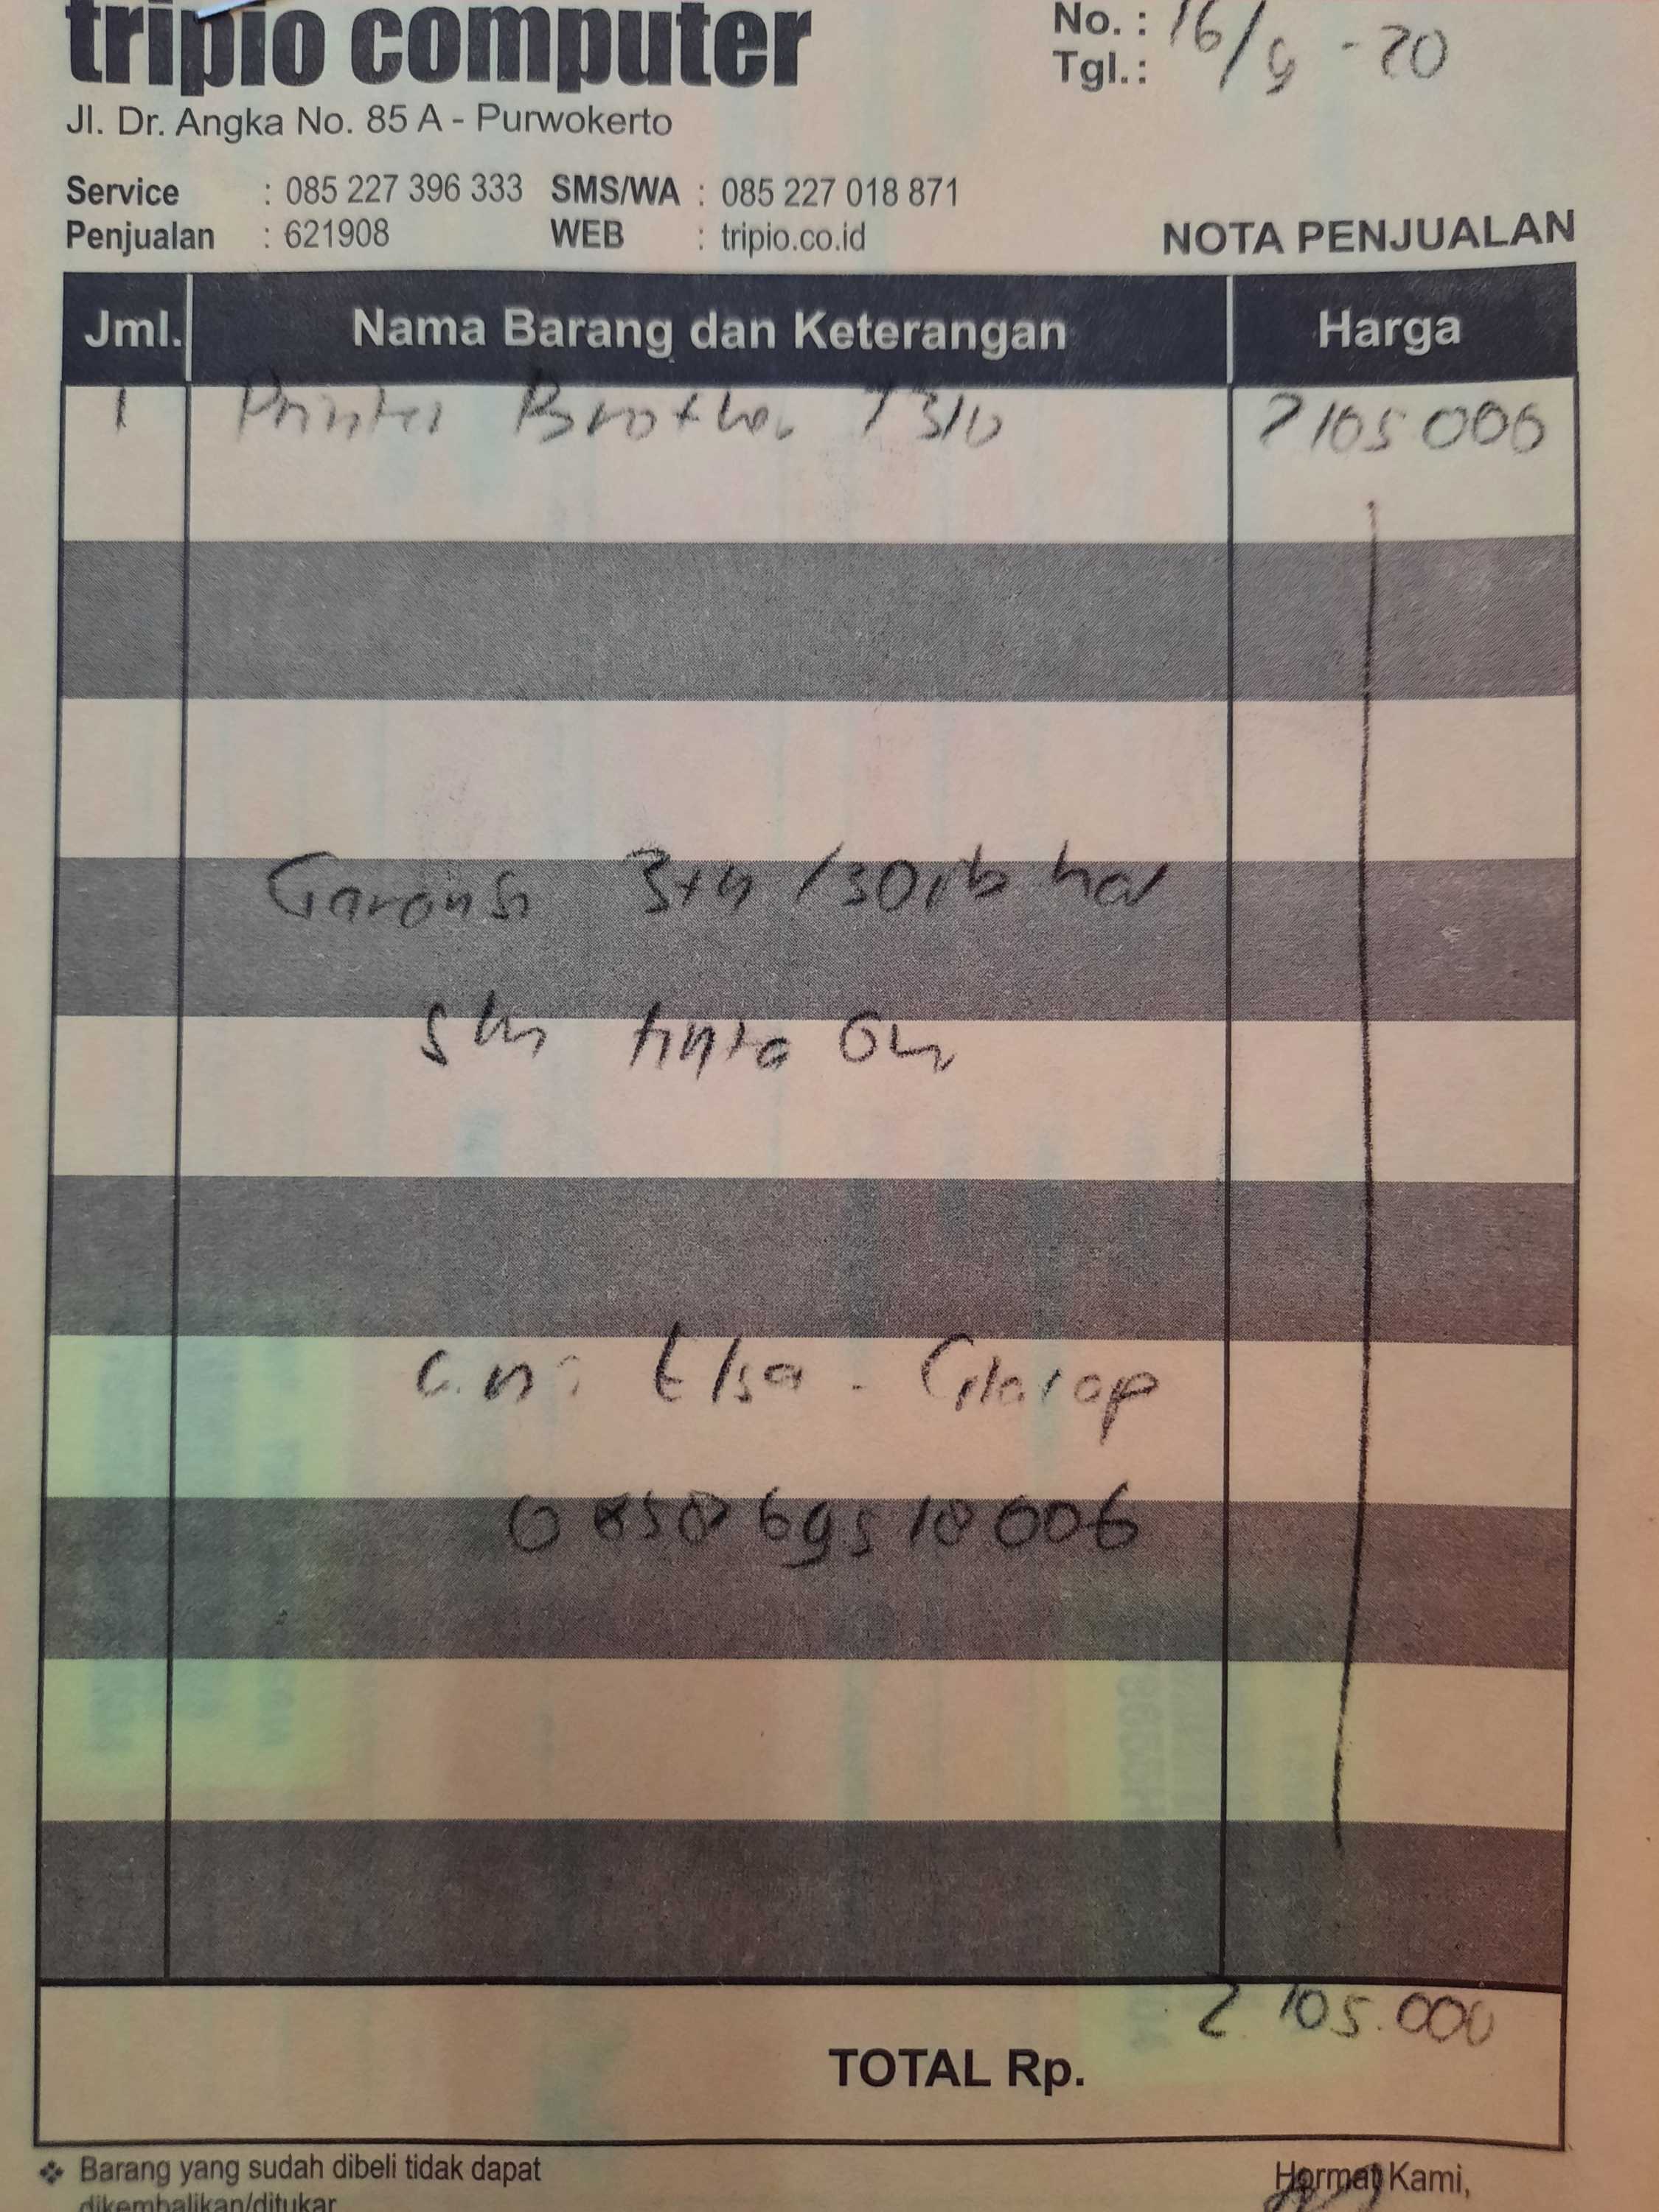 tripio computer
No. : 16/9 - 20
Tgl. :
Jl. Dr. Angka No. 85 A - Purwokerto
Service : 085 227 396 333 SMS/WA : 085 227 018 871
Penjualan : 621908 WEB : tripio.co.id
NOTA PENJUALAN
Jml. Nama Barang dan Keterangan Harga
1 Printer Brother T310 2105000
Garansi 3th /30rb hal
tinta
a.n : Elsa - Cilacap
085869518006
2.105.000
TOTAL Rp.
❖ Barang yang sudah dibeli tidak dapat
dikembalikan/ditukar
Hormat Kami,